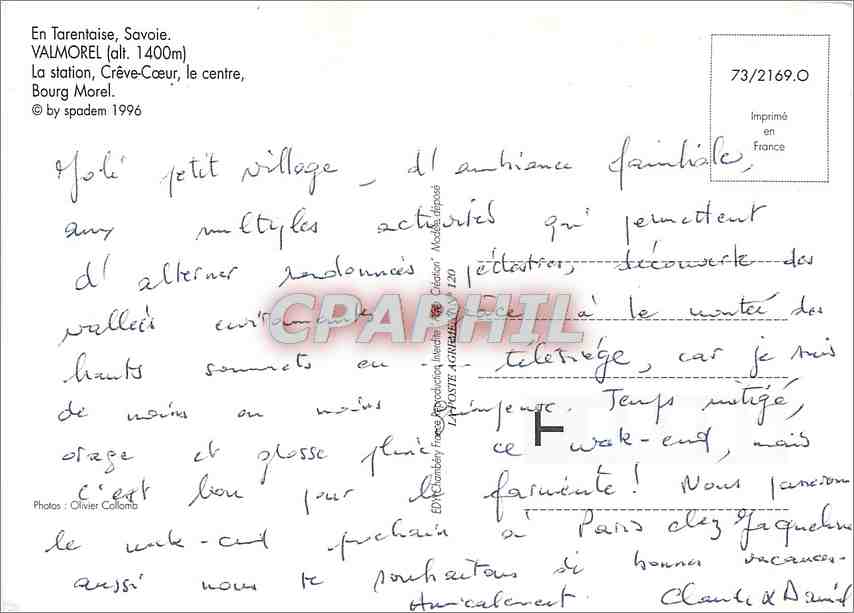 En Tarentaise, Savoie.
VALMOREL (alt. 1400m)
La station, Crêve-Cœur, le centre,
Bourg Morel.
© by spadem 1996
73/2169.O
Imprimé
en
France
Joli petit village, d'ambiance familiale,
aux multiples activités qui permettent
d'alterner randonnées pédestres, découverte des
vallées environnantes grâce à la montée des
hauts sommets en --- télésiège, car je suis
de moins en moins grimpeuse. Temps mitigé,
orage et grosse pluie ce week-end, mais
c'est bon pour le farniente! Nous passerons
le week-end prochain à Paris chez Jacqueline
aussi nous te souhaitons de bonnes vacances.
Amicalement. Claude & Daniel
Photos : Olivier Collomb
EDY Chambéry France Reproduction Interdite "Création" Modèle déposé
LA POSTE AGREMENT N° 120
CPAPHIL